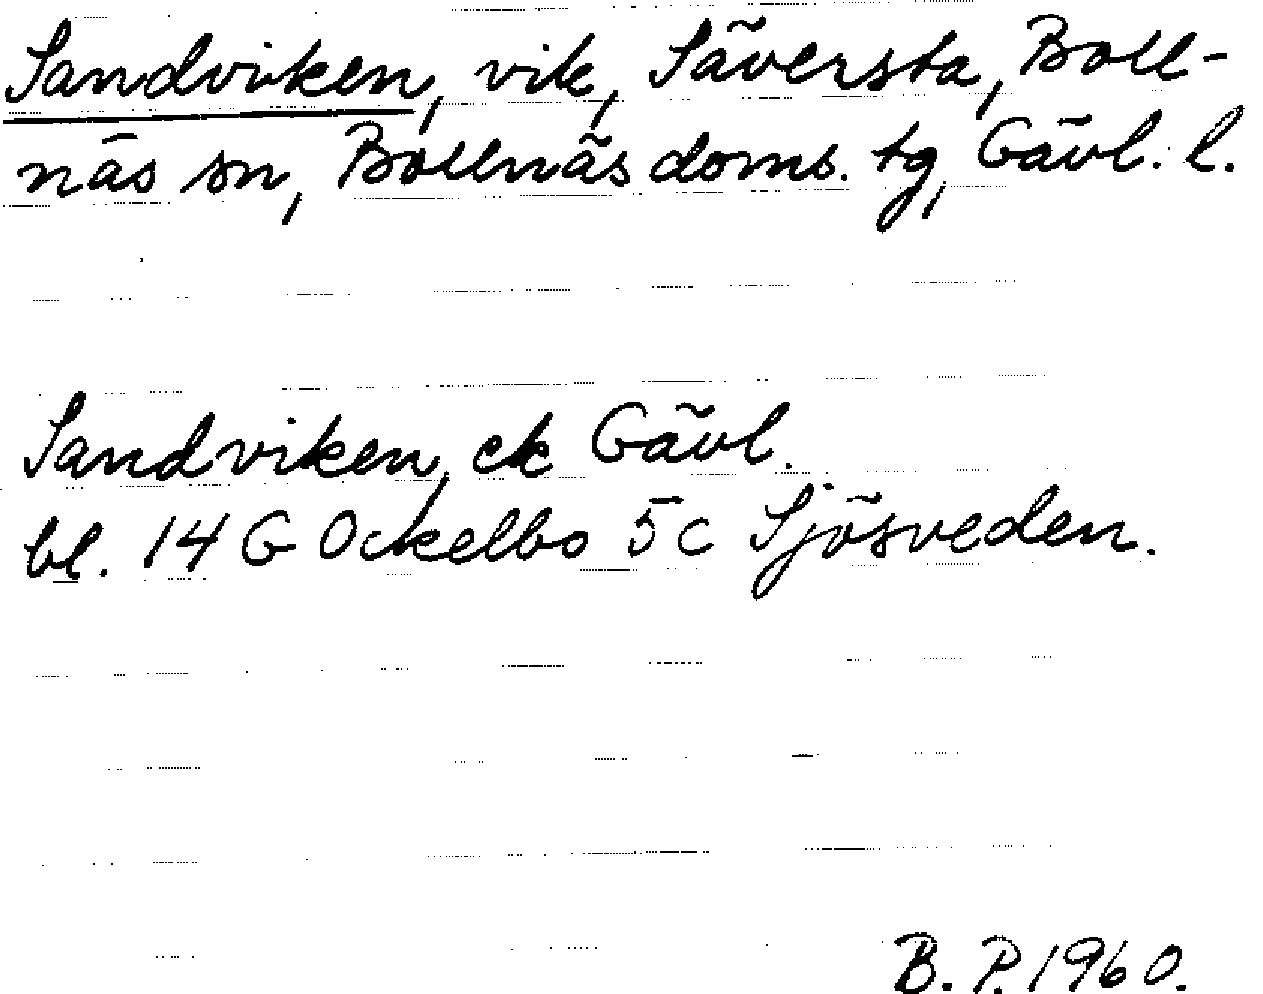 Sandviken, vik, Säversta, Boll-
näs sn, Bollnäs doms. tg, Gävl. l.
Sandviken, ek Gävl.
bl. 14 G Ockelbo 5c Sjösveden.
B. P. 1960.